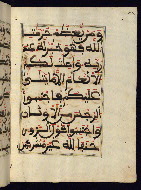 ومن يعظم حرمات
الله فهو خير له عند
ربه وأحلت لكم
الأنعام إلا ما يتلى
عليكم فاجتنبوا
الرجس من الأوثان
واجتنبوا قول الزور
حنفاء لله غير مشركين